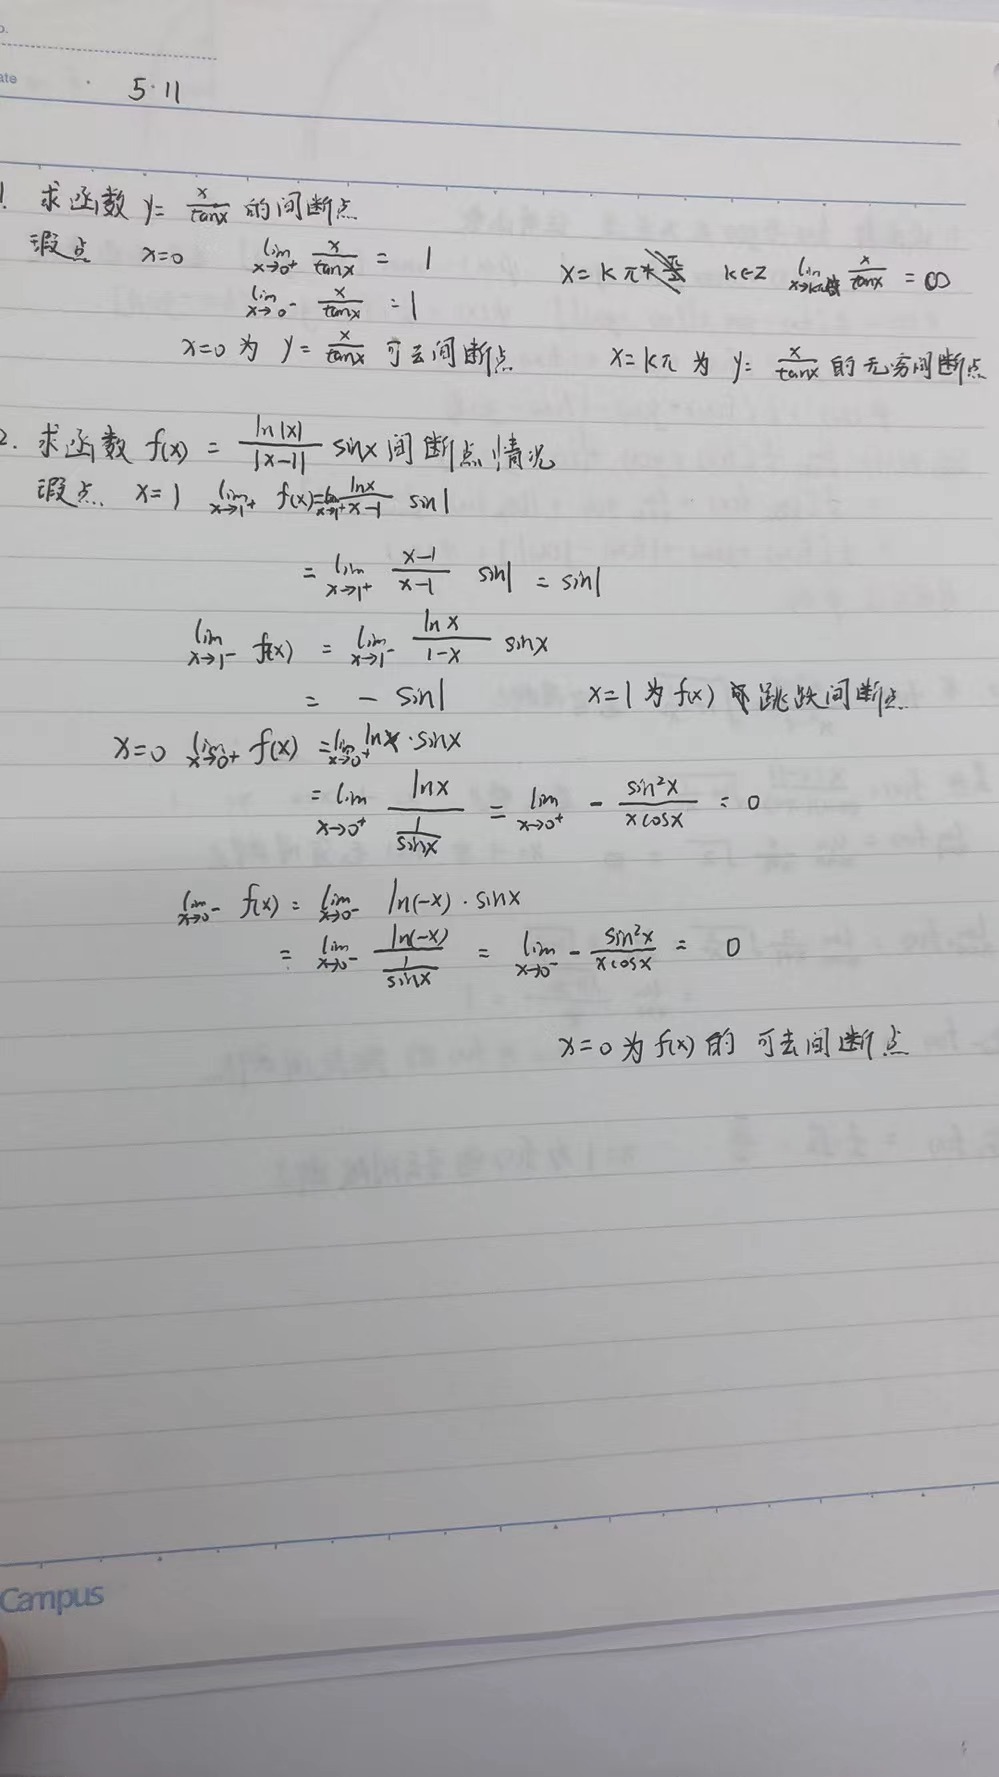 ate
5·11
1. 求函数 y= x/tanx 的间断点
瑕点 x=0 lim x→0+ x/tanx = 1 x=kπ k∈Z lim x→kπ x/tanx = ∞
lim x→0- x/tanx = 1
x=0 为 y= x/tanx 可去间断点 x=kπ 为 y= x/tanx 的无穷间断点
2. 求函数 f(x) = ln|x|/|x-1| sinx 间断点情况
瑕点 x=1 lim x→1+ f(x)=lim x→1+ lnx/x-1 sin1
= lim x→1+ x-1/x-1 sin1 = sin1
lim x→1- f(x) = lim x→1- lnx/1-x sinx
= - sin1 x=1 为 f(x) 跳跃间断点
x=0 lim x→0+ f(x) =lim x→0+ lnx·sinx
=lim x→0+ lnx/(1/sinx) = lim x→0+ - sin²x/xcosx = 0
lim x→0- f(x) = lim x→0- ln(-x)·sinx
= lim x→0- ln(-x)/(1/sinx) = lim x→0- - sin²x/xcosx = 0
x=0 为 f(x) 的 可去间断点
Campus